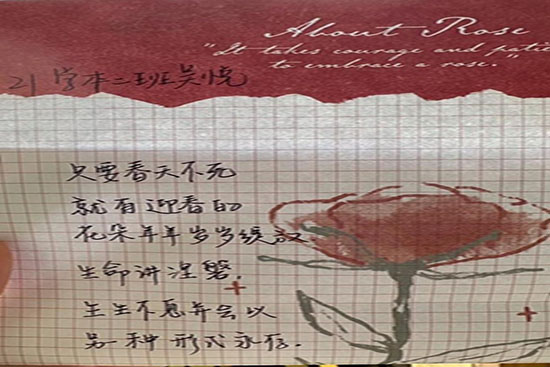 About Rose
"It takes courage and pati
to embrace a rose."
21学本二班吴悦
只要春天不死
就有迎春的
花朵年年岁岁绽放.
生命讲涅磐.
生生不息并会以
另一种形式永存.